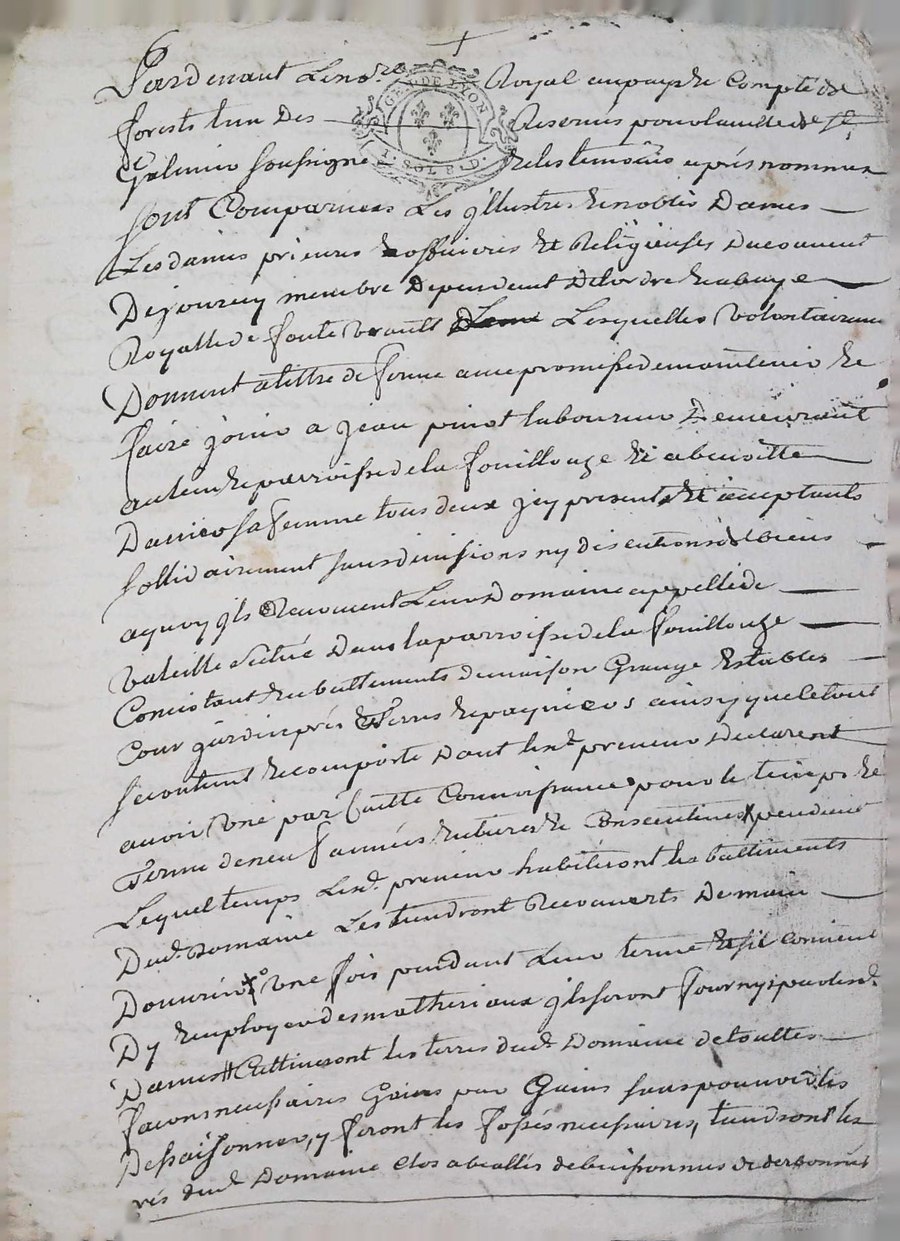 Pardevant Le no.re Royal au pays & Compté de
forests l'un des Reservés pour la ville de St
Galmier soussigné & les temoins après nommés
sont Comparües Les jllustres & nobles Dames
Les dames prieure & officieres & Religieuses du couvent
De jourcey membre Dependent De lordre & abaye
Royalle de fontevrault Lesquelles volontairement
Donnent a tittre de ferme avec promesse de maintenir &
faire jouir a jean pinot laboureur Demeurant
au lieu & parroisse de la fouillouze & a benoitte
sa femme tous deux jcy presents & acceptants
sollidairement sans divisions ny discutions de biens
a quoy jls Renoncent Leur Domaine appellé de
Valeille scitué Dans la parroisse de la fouillouze
Concistant en battiments de maison Grange Estables
Cour jardin prés & Terres & ainsy que le tout
se contient & comporte Dont les.d preneurs Declarent
avoir Une parfaitte Connoissance pour le temps &
Terme de neuf années entieres & Consecutives pendent
Lequel temps Les.d preneurs habiteront les battiments
Dud. Domaine Les tiendront Recouverts De main
Douvrier Une fois pendant Leur terme & sil Convient
Dy Employer des matheriaux jls seront fournis par les.d
Dames Cultiveront les terres dud. Domaine de touttes
façons necessaires Gains par Gains sans pouvoir les
Dessaisonner, y feront les fossés necessaires, tiendront les
prés dud. Domaine Clos